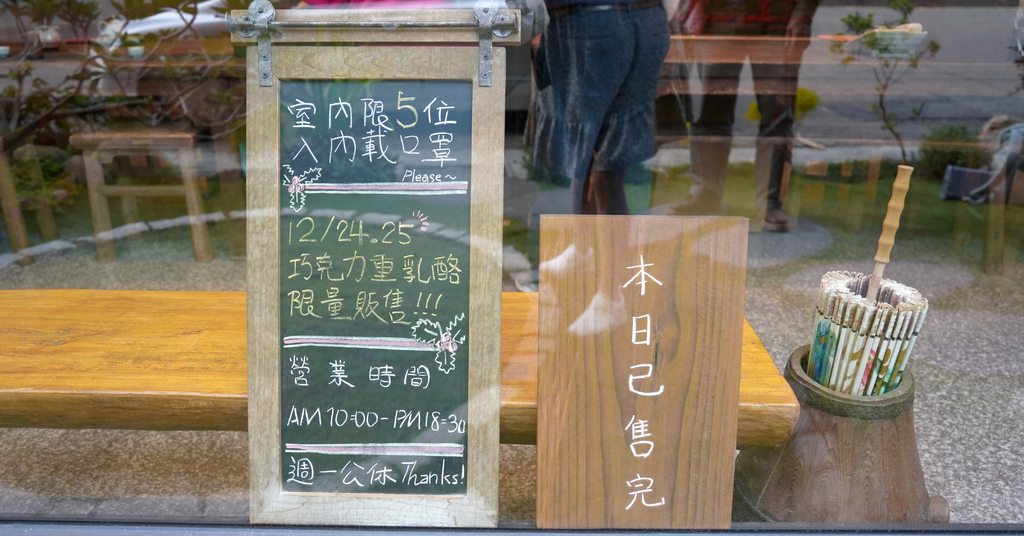 室內限5位
入內載口罩
Please~
12/24.25
巧克力重乳酪
限量販售!!!
營業時間
AM10:00-PM18:30
週一公休Thanks!
本日已售完